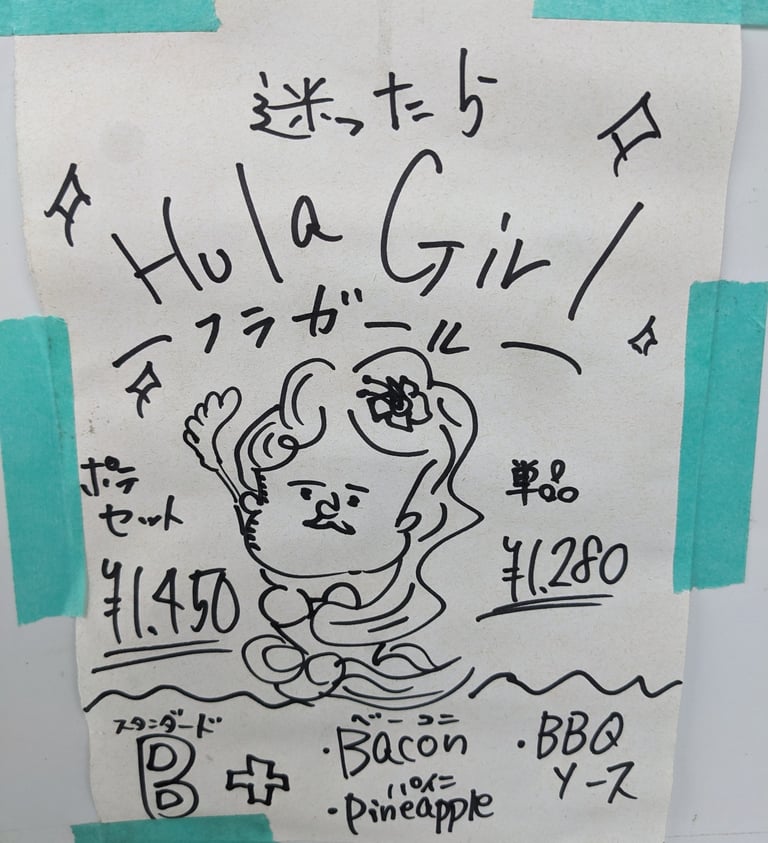 迷ったら
Hula Girl
フラガール
ポテ
セット
¥1.450
単品
¥1.280
スタンダード
B
D
+
ベーコン
・Bacon
パイン
・pineapple
・BBQ
ソース